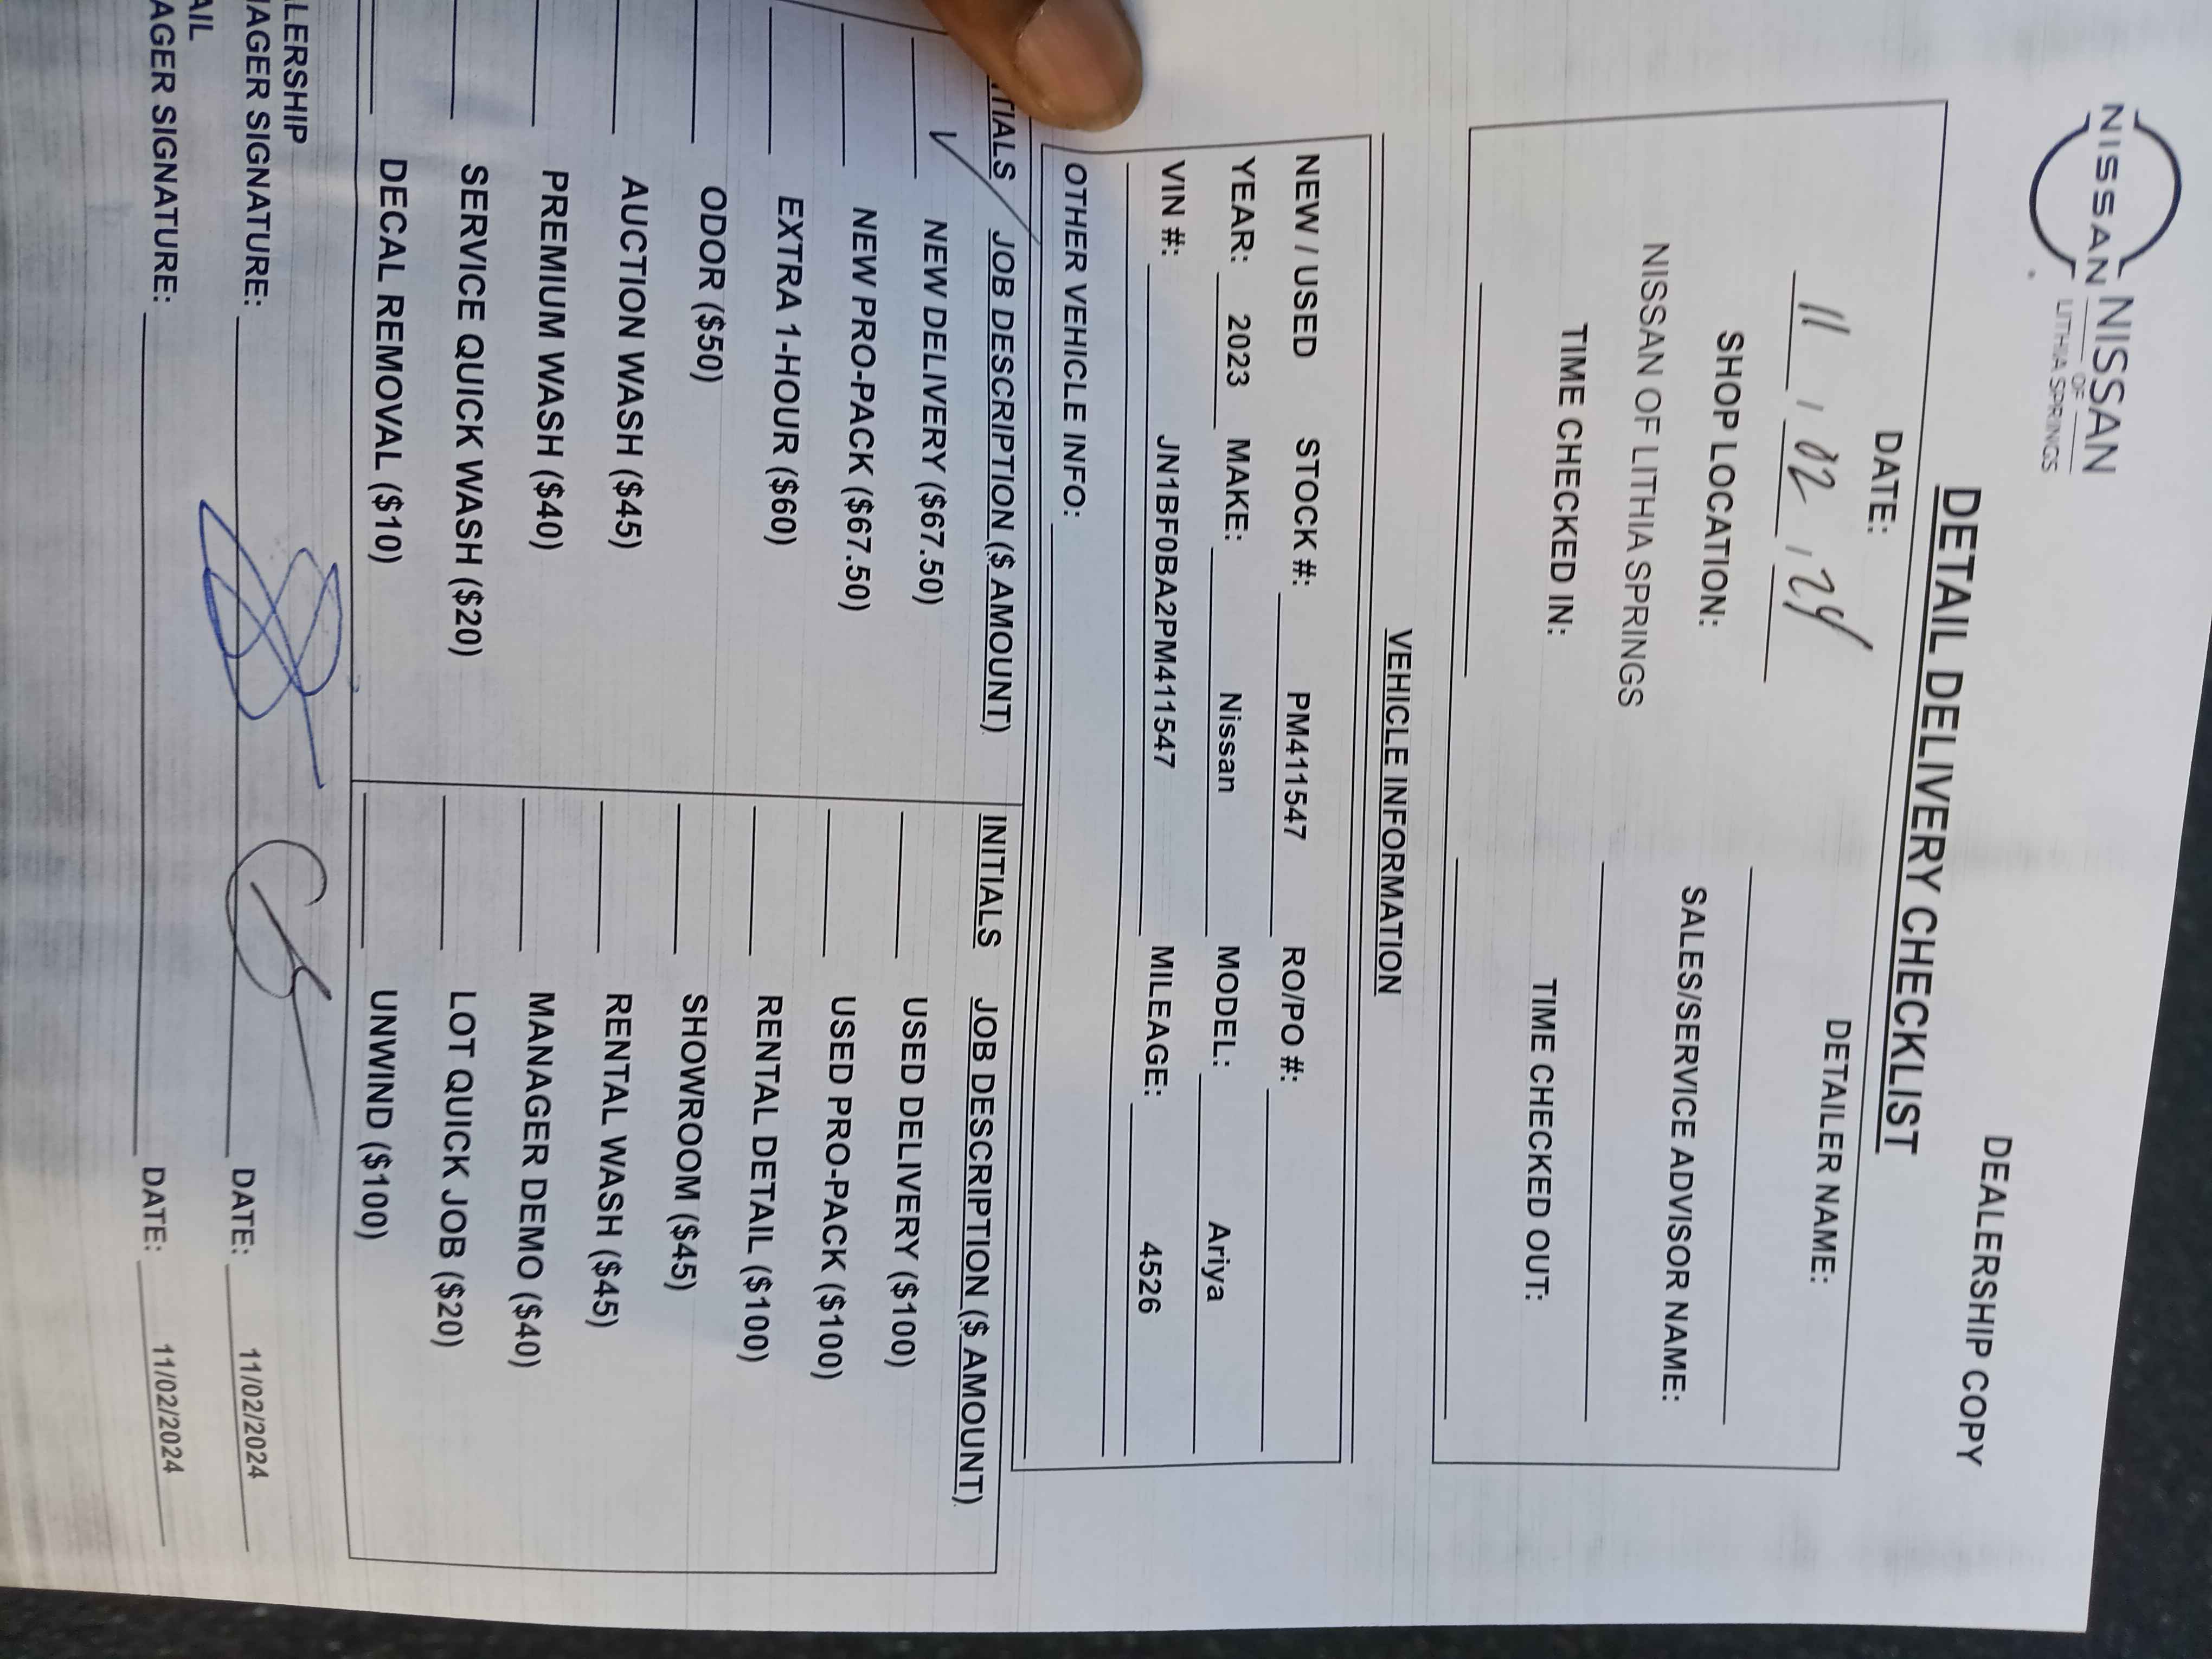 NISSAN
NISSAN
OF
LITHIA SPRINGS
DEALERSHIP COPY
DETAIL DELIVERY CHECKLIST
DATE: DETAILER NAME:
11 / 02 / 24
SHOP LOCATION: SALES/SERVICE ADVISOR NAME:
NISSAN OF LITHIA SPRINGS
TIME CHECKED IN: TIME CHECKED OUT:
VEHICLE INFORMATION
NEW / USED STOCK #: PM411547 RO/PO #:
YEAR: 2023 MAKE: Nissan MODEL: Ariya
VIN #: JN1BF0BA2PM411547 MILEAGE: 4526
OTHER VEHICLE INFO:
TIALS JOB DESCRIPTION ($ AMOUNT) INITIALS JOB DESCRIPTION ($ AMOUNT)
✓ NEW DELIVERY ($67.50) USED DELIVERY ($100)
NEW PRO-PACK ($67.50) USED PRO-PACK ($100)
EXTRA 1-HOUR ($60) RENTAL DETAIL ($100)
ODOR ($50) SHOWROOM ($45)
AUCTION WASH ($45) RENTAL WASH ($45)
PREMIUM WASH ($40) MANAGER DEMO ($40)
SERVICE QUICK WASH ($20) LOT QUICK JOB ($20)
DECAL REMOVAL ($10) UNWIND ($100)
LERSHIP
AGER SIGNATURE: DATE: 11/02/2024
AIL
AGER SIGNATURE: DATE: 11/02/2024